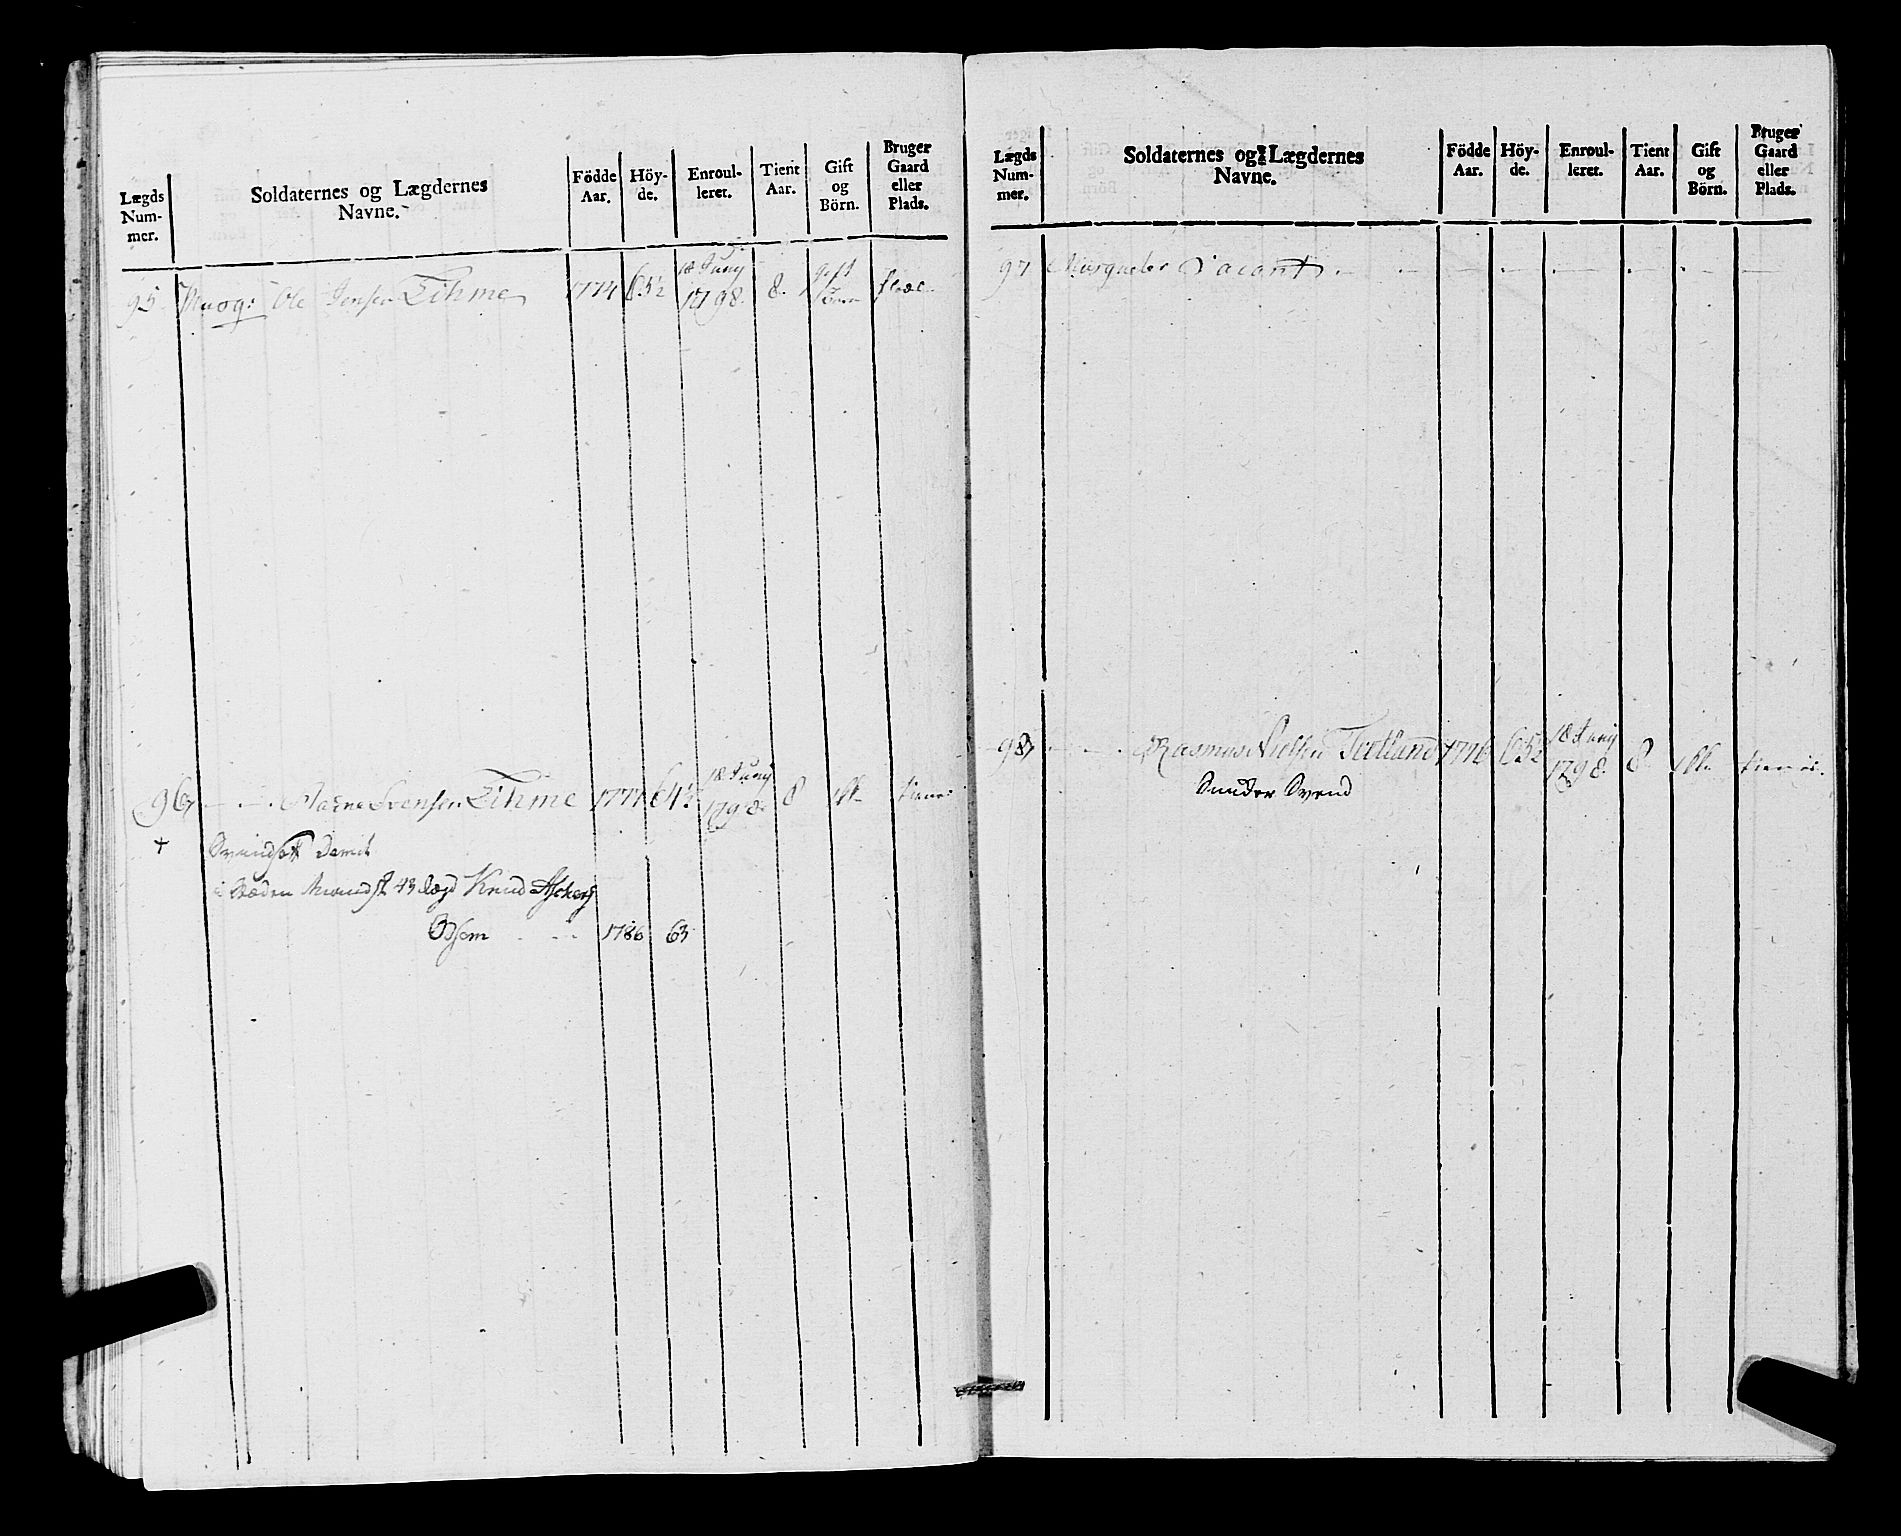 Lægds Num- mer.
Soldaternes og Lægdernes Navne.
Födde Aar.
Höy- de.
Enroul- leret.
Tient Aar.
Gift og Börn.
Bruger Gaard eller Plads.
95. Musq: Ole Jensen Tihme 1774 65½ 18 Juny 1798. 8. gift
96, Svensen Tihme 1777 64½ 18 Juny 1798. 8
+
i 43 Lægd Knud
1786 63
Lægds Num- mer.
Soldaternes og Lægdernes Navne.
Födde Aar.
Höy- de.
Enroul- leret.
Tient Aar.
Gift og Börn.
Bruger Gaard eller Plads.
97 Musqueter Vacant
98, Rasmus Nielsen Tretland 1776 65½ 18 Juny 1798. 8.
Svend